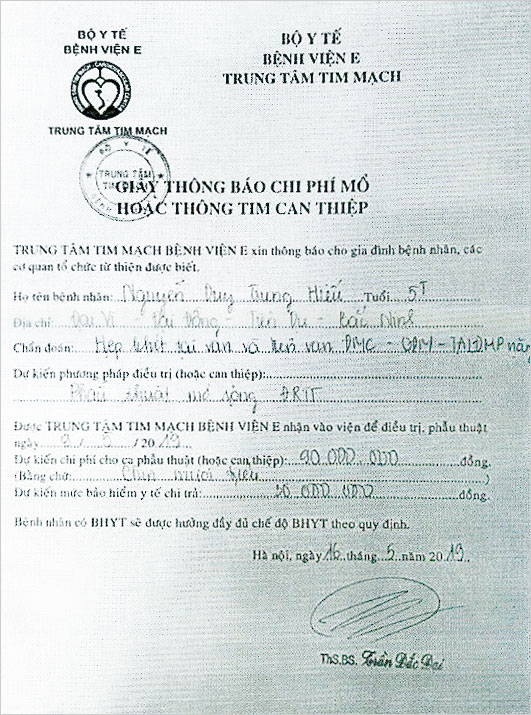 BỘ Y TẾ
BỆNH VIỆN E
TRUNG TÂM TIM MẠCH
BỘ Y TẾ
BỆNH VIỆN E
TRUNG TÂM TIM MẠCH
BỘ Y TẾ
TRUNG TÂM
GIẤY THÔNG BÁO CHI PHÍ MỔ
HOẶC THÔNG TIM CAN THIỆP
TRUNG TÂM TIM MẠCH BỆNH VIỆN E xin thông báo cho gia đình bệnh nhân, các
cơ quan tổ chức từ thiện được biết.
Họ tên bệnh nhân: Nguyễn Duy Trung Hiếu Tuổi: 5T
Địa chỉ: Đại Vi - Đại Đồng - Tiên Du - Bắc Ninh
Chẩn đoán: Hẹp khít tại van và trên van ĐMC -
Dự kiến phương pháp điều trị (hoặc can thiệp):
Phẫu thuật mở rộng ĐRTT
Được TRUNG TÂM TIM MẠCH BỆNH VIỆN E nhận vào viện để điều trị, phẫu thuật
ngày / 5 / 2019
Dự kiến chi phí cho ca phẫu thuật (hoặc can thiệp): 90 000.000 đồng.
(Bằng chữ: Chín mươi triệu )
Dự kiến mức bảo hiểm y tế chi trả: 000 000 đồng.
Bệnh nhân có BHYT sẽ được hưởng đầy đủ chế độ BHYT theo quy định.
Hà nội, ngày 16 tháng 5 năm 2019
ThS.BS. Trần Đắc Đại